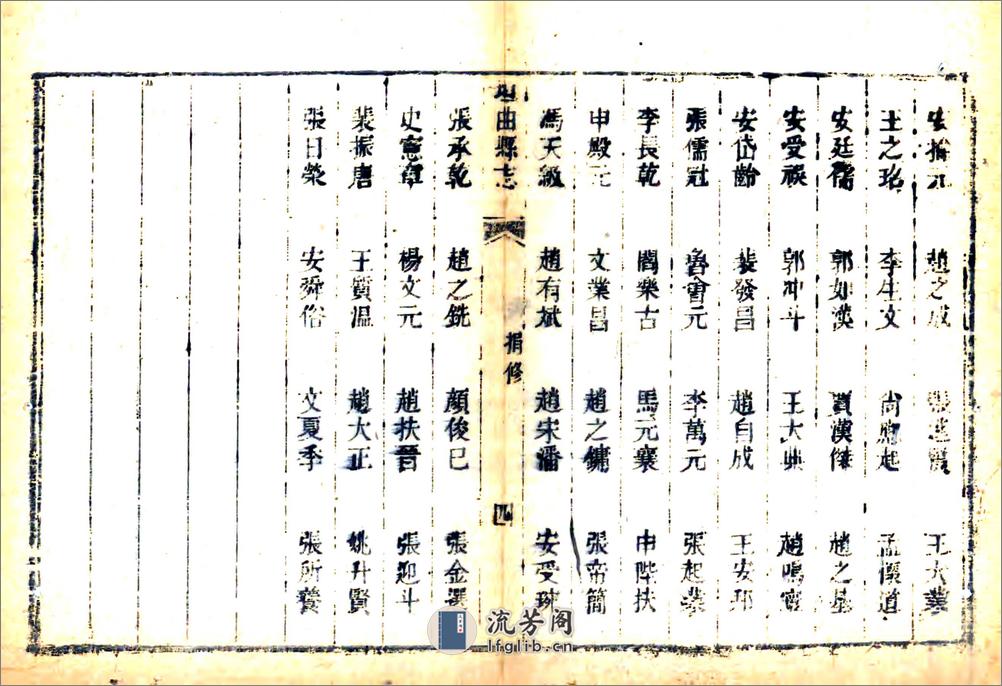 趙之成 王大業
王之珖 李生文 尚 起 孟懷道
安廷儒 郭如漢 劉漢傑 趙之基
安受祿 郭冲斗 王大典 趙鳴
安岱齡 裴發昌 趙自成 王安邦
張儒冠 魯會元 李萬元 張起業
李長乾 閻樂古 馬元襄 申陛扶
申殿元 文業昌 趙之鏞 張帝簡
馮天級 趙有斌 趙宋潘 安受球
曲縣志 捐修 四
張承乾 趙之銑 顔俊巳 張金選
史憲章 楊文元 趙扶晉 張迎斗
裴振唐 王質温 趙大正 姚升賢
張日榮 安舜俗 文夏季 張所養
流芳阁
lfglib.cn